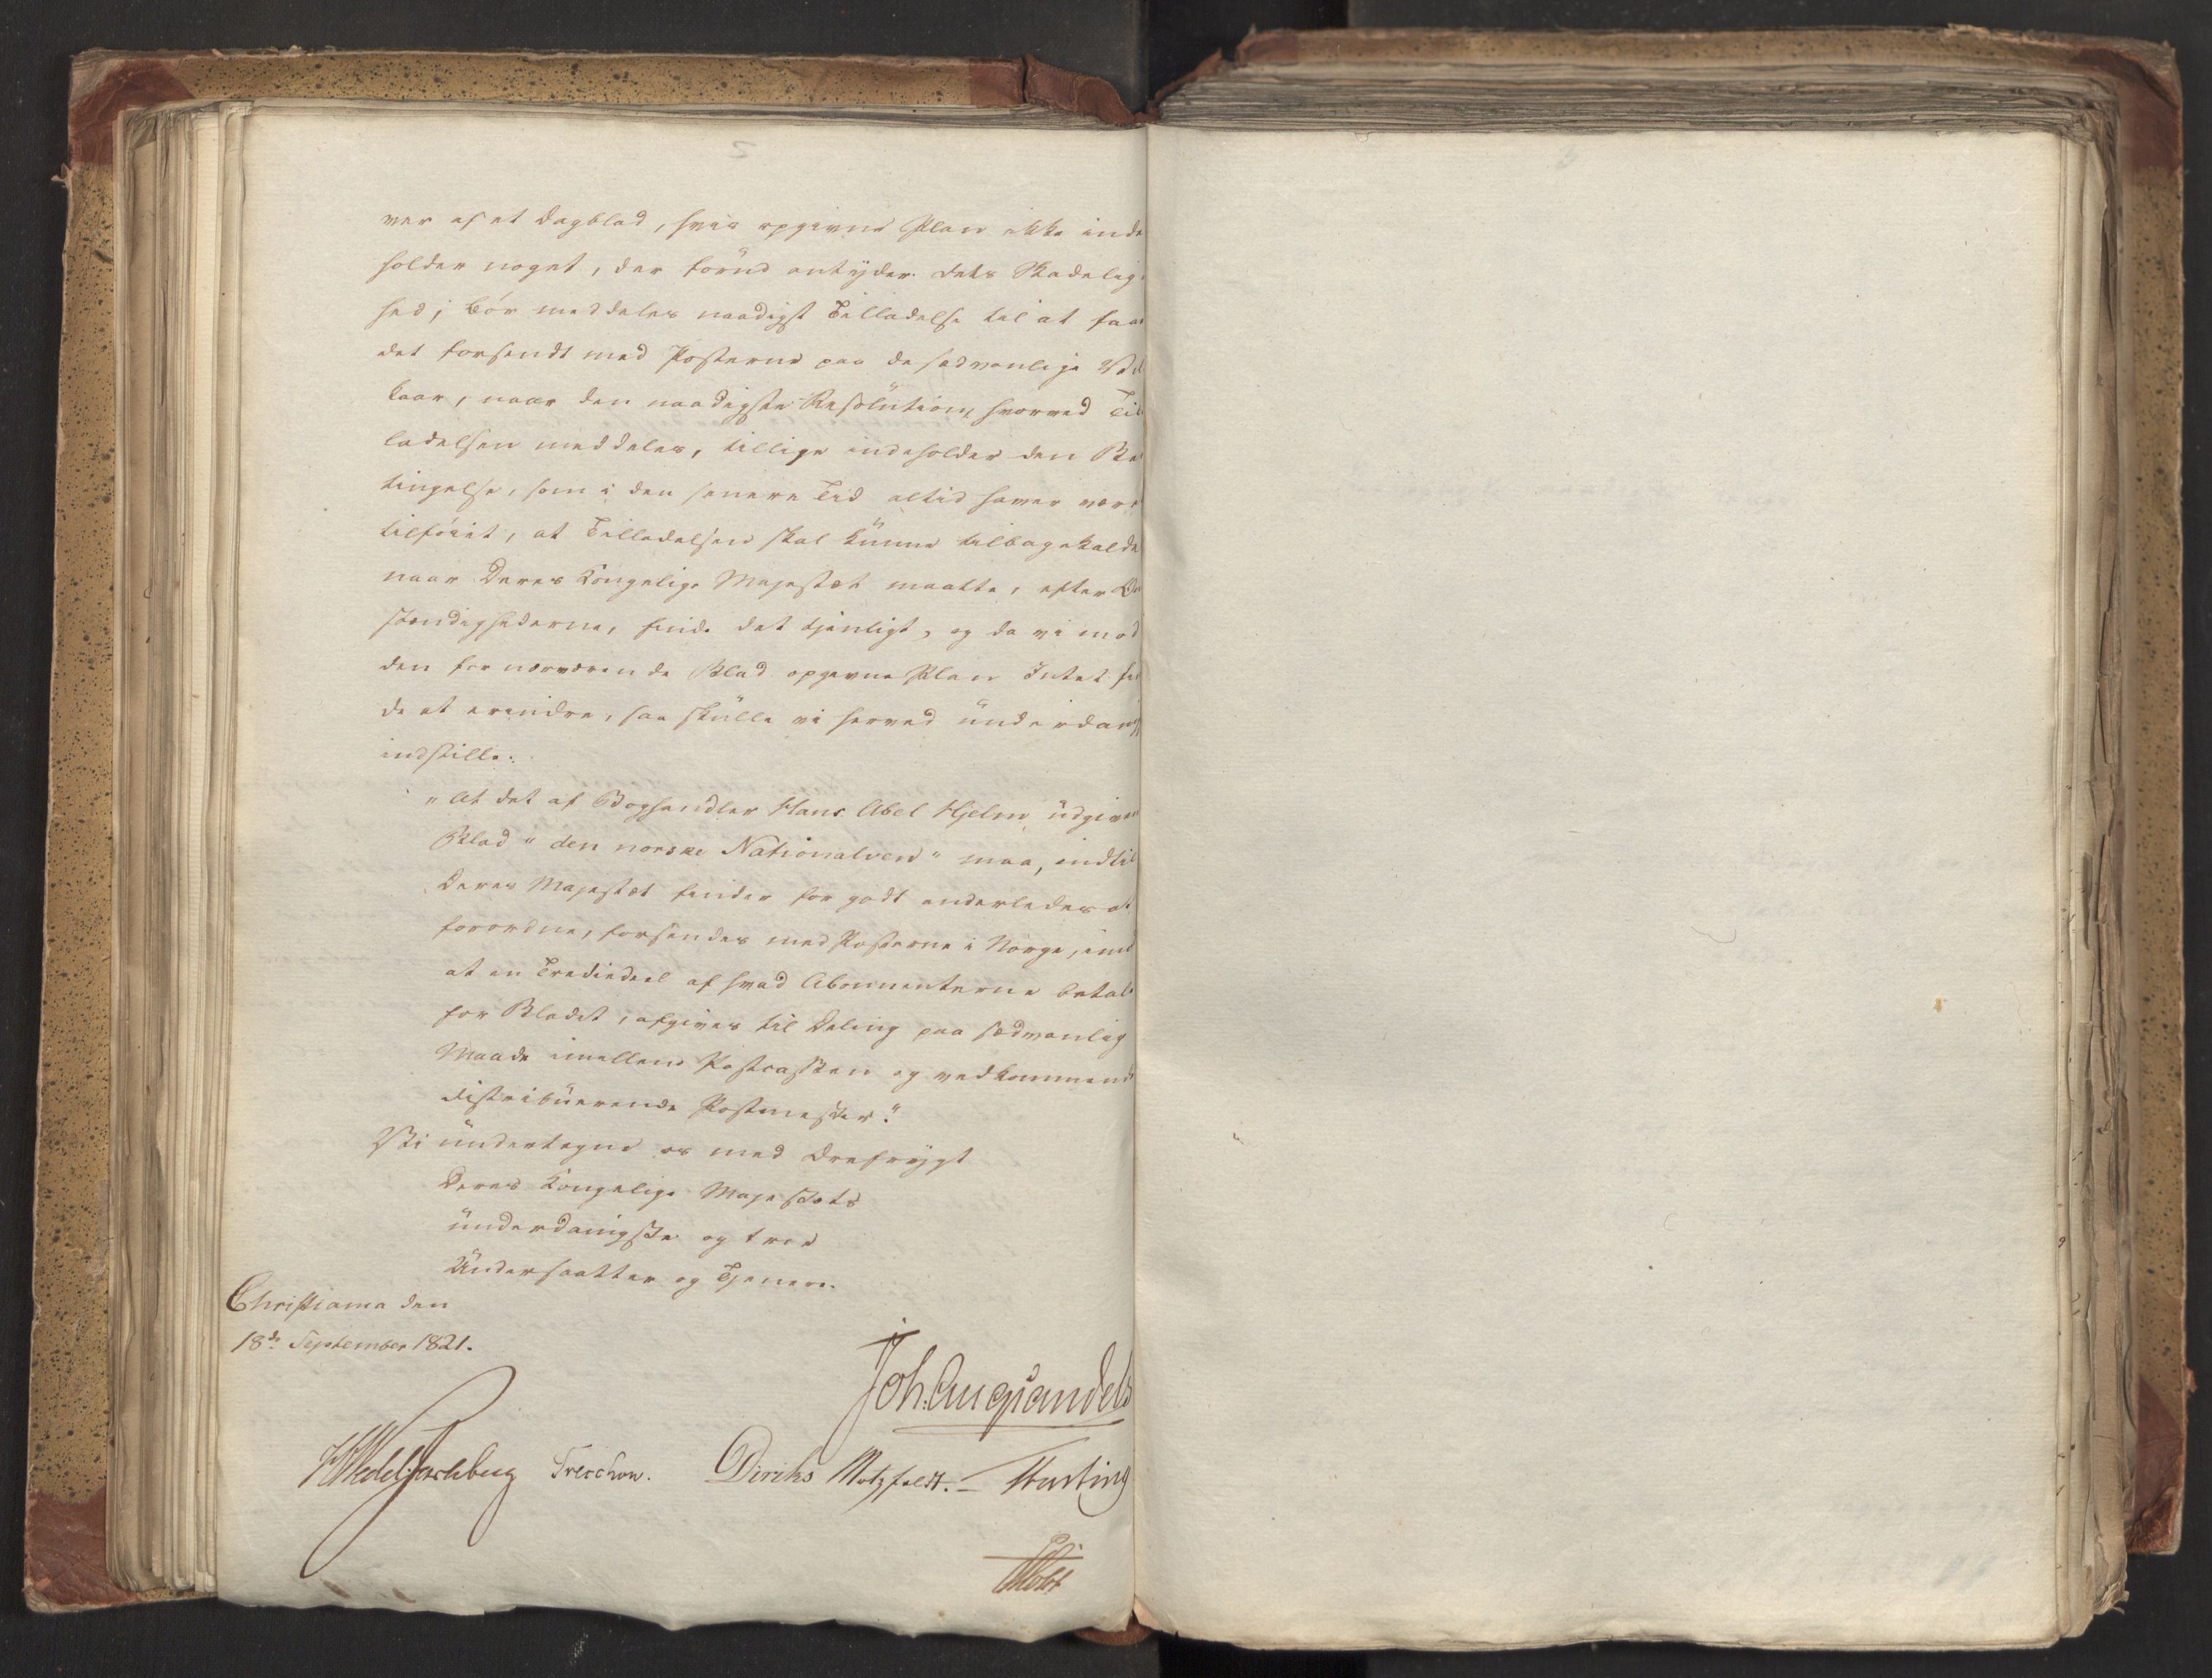 ver af et Dagblad, hvis opgivne Plan ikke inde
holder noget, der forud antyder dets Skadelig-
hed, bør meddeles naadigst Tilladelse til at faae
det forsendt med Posterne paa de sædvanlige Vil
kaar, naar den naadigste Resolution, hvorved Til
ladelsen meddeles, tillige indeholder den Be
tingelse, som i den senere Tid altid haver vært
tilføiet, at Tilladelsen skal kunne tilbagekalde
naar Deres Kongelige Majestæt maatte, efter Om
stændighederne, finde det tjenligt, og da vi mod
den for nærværende Blad opgivne Plan Intet fin
de at erindre, saa skulle vi herved underdanigst
indstille:
"At det af Boghandler Hans Abel Hjelm udgivne
Blad "den norske Nationalven" maa, indtil
Deres Majestæt finder for godt anderledes at
forordne, forsendes med Posterne i Norge, imod
at en Trediedeel af hvad Abonnenterne betale
for Bladet, afgives til Deling paa sædvanlig
Maade imellem Postcassen og vedkommende
distribuerende Postmester."
Vi undertegne os med Ærefrygt
Deres Kongelige Majestæts
underdanigste og troe
Undersaatter og Tjenere.
Christiania den
18de September 1821.
Joh: Aug Sandels
HWedel Jarlsberg Treschow. Diriks Motzfeldt. Fasting
Holst